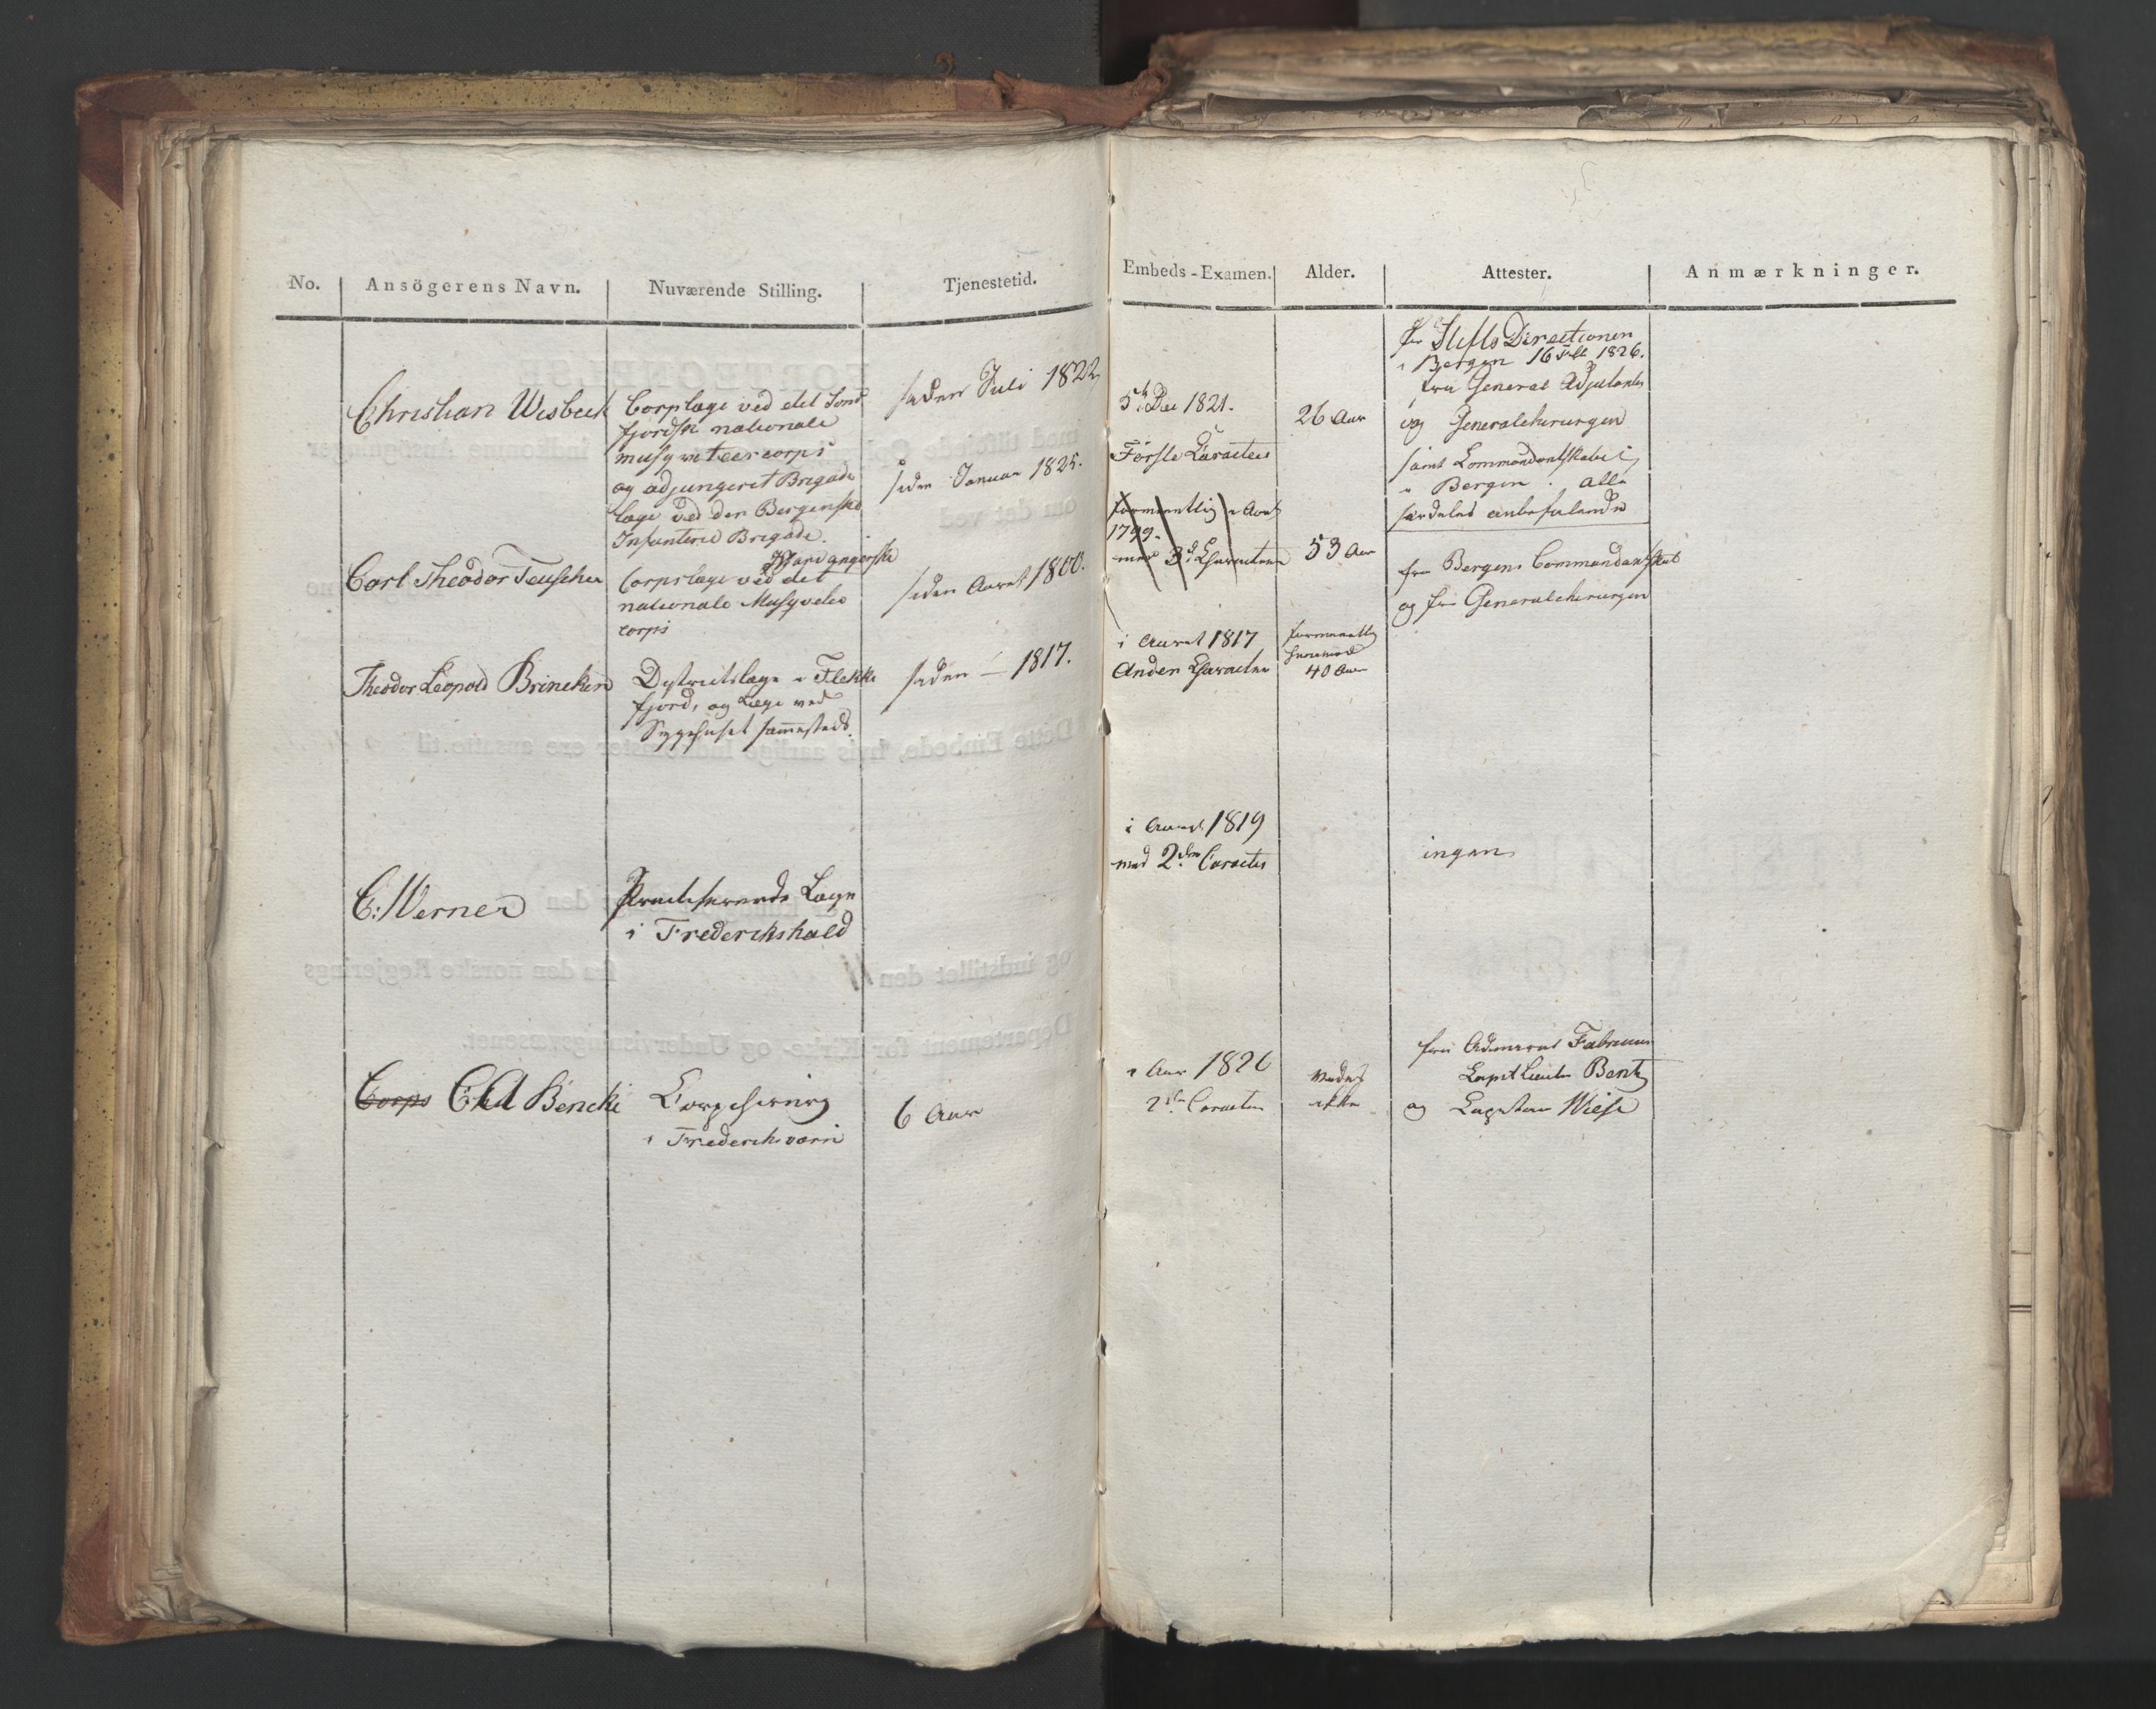 No.
Ansögerens Navn.
Nuværende Stilling.
Tjenestetid.
Embeds-Examen.
Alder.
Attester.
Anmærkninger.
Christian Wisbech
Corpslæge ved det Sønd
fjordske nationale
musqveteercorps
og adjungeret Brigade
læge ved den Bergenske
Infanterie Brigade.
siden Juli 1822,
siden Januar 1825.
5te Dec 1821.
Første Caracteer
26 Aar
fra Stifts Directionen
i Bergen 16 Febr 1826.
fra General Adjutanten
og Generalchirurgen
samt Commandantskabet
i Bergen. alle
særdeles anbefalende
Carl Theodor Teuscher
Hardangerske
Corpslæge ved det
nationale Musqveteer
corps
siden Aaret 1800.
formeentlig i Aaret
1799.
med 3de Characteer
53 Aar
fra Bergens Commandantskab
og fra Generalchirurgen
Theodor Leopold Brincken
Distrietslæge i Flekke
fjord, og Læge ved
Sygehuset sammesteds.
siden — 1817.
i Aaret 1817
Anden Characteer
formeentlig
henimod
40 Aar
C: Werner
Practiserende Læge
i Frederichshald
i Aaret 1819
med 2den Caracter
ingen
Corps C Bencke
Corpschirurg
i Frederichsværn
6 Aar
i Aar 1826
2den Caracter
vides
ikke
fra Admiral Fabricius
Capt Lieutn Bentz
og Capitain Wiese